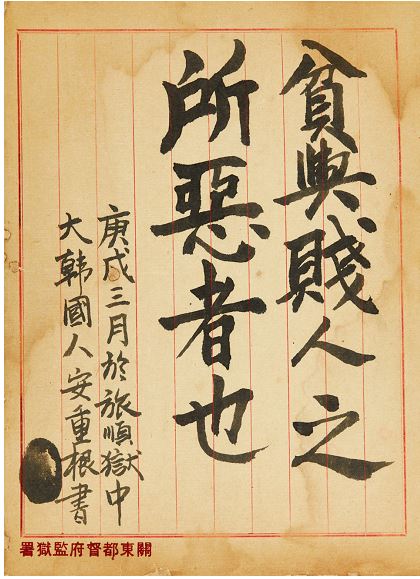 貧與賤人之
所惡者也
庚戌三月於旅順獄中
大韓國人安重根書
關東都督府監獄署